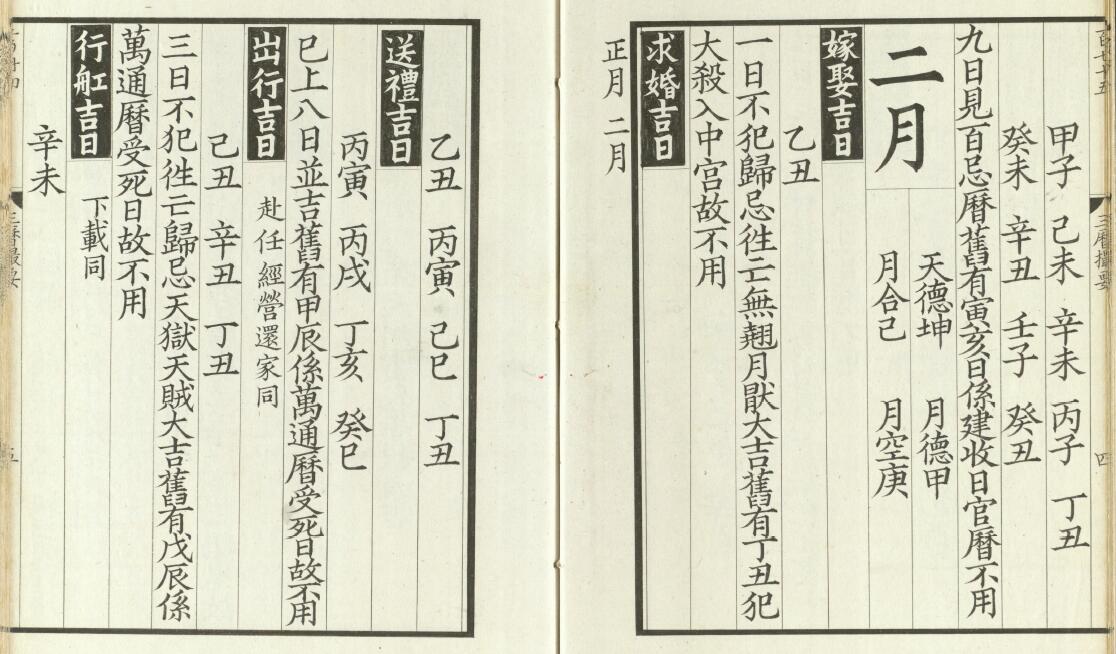 甲子 己未 辛未 丙子 丁丑
癸未 辛丑 壬子 癸丑
九日見百忌曆舊有寅亥日係建收日官曆不用
二月
天德坤 月德甲
月合己 月空庚
嫁娶吉日
乙丑
一日不犯歸忌徃亡無翹月猒大吉舊有丁丑犯
大殺入中宮故不用
求婚吉日
正月 二月
三曆撮要
四
乙丑 丙寅 己巳 丁丑
送禮吉日
丙寅 丙戌 丁亥 癸巳
巳上八日並吉舊有甲辰係萬通曆受死日故不用
出行吉日
赴任經營還家同
己丑 辛丑 丁丑
三日不犯徃亡歸忌天獄天賊大吉舊有戊辰係
萬通曆受死日故不用
行舡吉日
下載同
辛未
三曆撮要
五